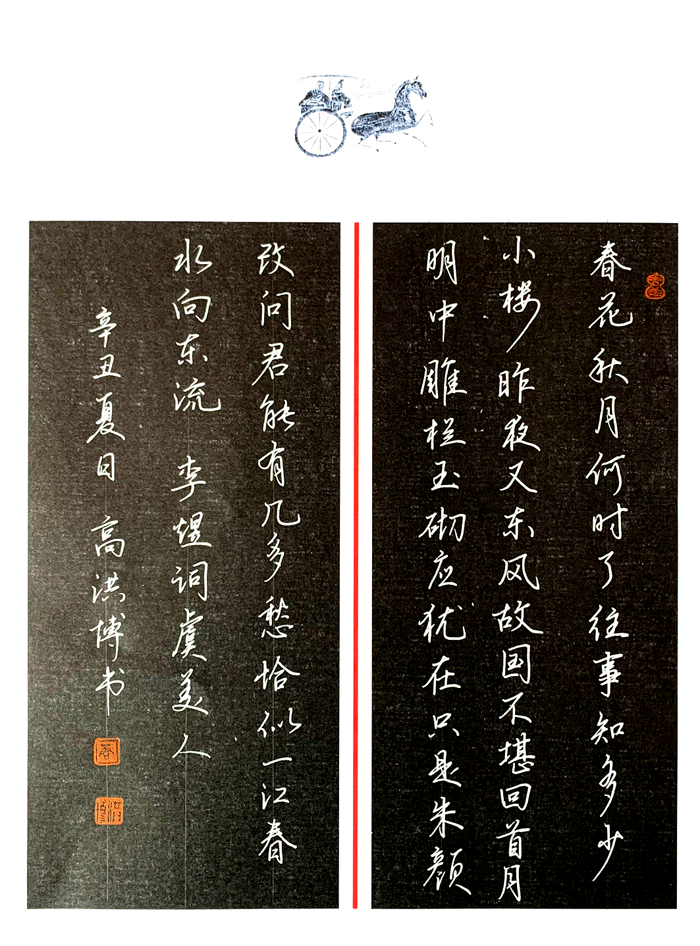 春花秋月何时了往事知多少
小楼昨夜又东风故国不堪回首月
明中雕栏玉砌应犹在只是朱颜
改问君能有几多愁恰似一江春
水向东流 李煜词虞美人
辛丑夏日 高洪博书